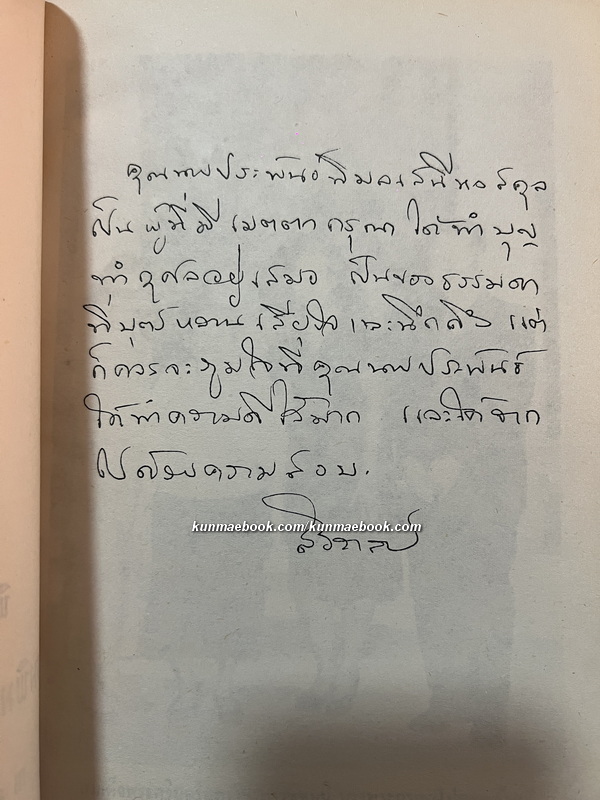 คุณนพประพันธ์ พิมลเสนี
เป็นผู้ที่มีเมตตา กรุณา ได้ทำบุญ
ทำกุศลอยู่เสมอ เป็นของธรรมดา
ที่บุตรหลานเสียใจและนึกถึง แต่
ก็ควรจะภูมิใจที่คุณนพประพันธ์
ได้ทำความดีไว้มาก และได้จาก
ไปด้วยความสงบ.
kunmaebook.com/kunmaebook.com